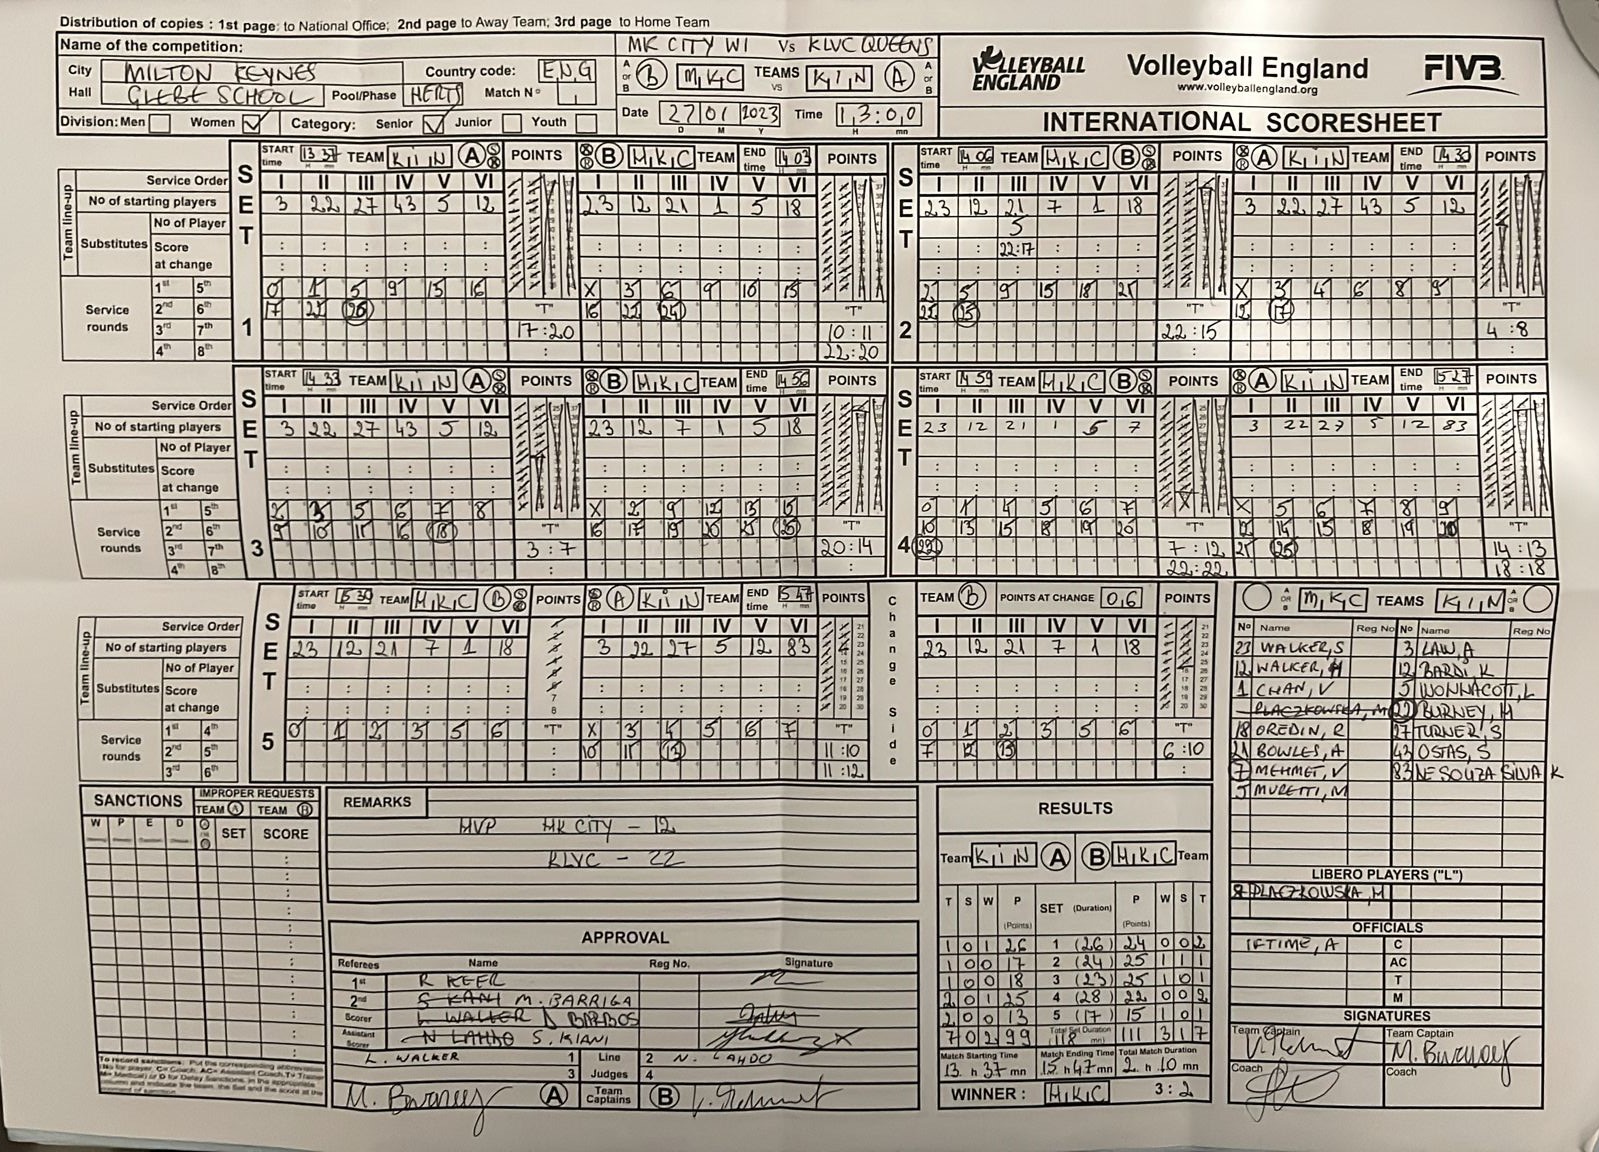 Distribution of copies : 1st page: to National Office; 2nd page to Away Team; 3rd page to Home Team
Name of the competition:
MK CITY W1 Vs KLVC QUEENS
City MILTON KEYNES Country code: ENG
Hall GLEBE SCHOOL Pool/Phase HERTS Match N° 1
A or B B MKC TEAMS vs KIN A A or B
Division: Men Women Category: Senior Junior Youth
Date 27/01/2023 Time 13:00
VOLLEYBALL ENGLAND
Volleyball England
www.volleyballengland.org
FIVB
INTERNATIONAL SCORESHEET
SET 1
START time 13 37 TEAM KIN A POINTS B MKC TEAM END time 14 03 POINTS
Service Order I II III IV V VI I II III IV V VI
No of starting players 3 22 27 43 5 12 23 12 21 1 5 18
Team line-up
Substitutes
No of Player
Score at change
Service rounds
1st 5th 0 1 5 9 15 16 X 3 6 9 10 15
2nd 6th 17 22 26 16 22 24
3rd 7th
4th 8th
"T" 17:20
"T" 10:11
22:20
SET 2
START time 14 06 TEAM MKC B POINTS A KIN TEAM END time 14 30 POINTS
I II III IV V VI I II III IV V VI
23 12 21 7 1 18 3 22 27 43 5 12
5
22:17
2 5 9 15 18 21 X 3 4 6 8 9
22 25 12 17
"T" 22:15
"T" 4:8
SET 3
START time 14 33 TEAM KIN A POINTS B MKC TEAM END time 14 56 POINTS
Service Order I II III IV V VI I II III IV V VI
No of starting players 3 22 27 43 5 12 23 12 7 1 5 18
Team line-up
Substitutes
No of Player
Score at change
Service rounds
1st 5th 2 3 5 6 7 8 X 2 9 12 13 15
2nd 6th 9 10 11 16 18 16 17 19 20 25
3rd 7th
4th 8th
"T" 3:7
"T" 20:14
SET 4
START time 14 59 TEAM MKC B POINTS A KIN TEAM END time 15 27 POINTS
I II III IV V VI I II III IV V VI
23 12 21 1 5 7 3 22 27 5 12 83
0 1 4 5 6 7 X 5 6 7 8 9
10 13 15 18 19 20 12 14 15 18 19 20
22 21 25
"T" 7:12
22:22
"T" 14:13
18:18
SET 5
START time 15 30 TEAM MKC B POINTS A KIN TEAM END time 15 47 POINTS
Service Order I II III IV V VI I II III IV V VI
No of starting players 23 12 21 7 1 18 3 22 27 5 12 83
Team line-up
Substitutes
No of Player
Score at change
Service rounds
1st 4th 0 1 2 3 5 6 X 3 4 5 6 7
2nd 5th 10 11 13
3rd 6th
"T"
"T" 11:10
11:12
Change Side
TEAM B POINTS AT CHANGE 06 POINTS
I II III IV V VI
23 12 21 7 1 18
0 1 2 3 5 6
7 12 15
"T" 6:10
A OR B MKC TEAMS KIN A OR B
N° Name Reg No N° Name Reg No
23 WALKER, S 3 LAW, A
12 WALKER, H 12 BARDI, K
1 CHAN, V 5 WONNACOT, L
PLACZKOWSKA, M 22 BURNEY, M
18 OREDIN, R 27 TURNER, S
21 BOWLES, A 43 OSTAS, S
7 MEHMET, V 83 DE SOUZA SILVA K
5 MURETTI, M
LIBERO PLAYERS ("L")
8 PLACZKOWSKA, M
OFFICIALS
IFTIME, A C
AC
T
M
SIGNATURES
Team Captain Team Captain
M. Burney
Coach Coach
SANCTIONS
IMPROPER REQUESTS
TEAM A TEAM B
W P E D A or B SET SCORE
To record sanctions: Put the corresponding abbreviation
REMARKS
MVP MK CITY - 12
KLVC - 22
APPROVAL
Referees Name Reg No. Signature
1st R KEER
2nd S KIANI M. BARRIGA
Scorer L WALKER D BARBOS
Assistant Scorer N LAHDO S. KIANI
L. WALKER 1 Line Judges 2 N. LAHDO
3 4
M. Burney A Team Captains B
RESULTS
Team KIN A B MKC Team
T S W P (Points) SET (Duration) P (Points) W S T
1 0 1 26 1 (26) 24 0 0 2
1 0 0 17 2 (24) 25 1 1 1
1 0 0 18 3 (23) 25 1 0 1
2 0 1 25 4 (28) 22 0 0 2
2 0 0 13 5 (17) 15 1 0 1
7 0 2 99 Total Set Duration (118 mn) 111 3 1 7
Match Starting Time Match Ending Time Total Match Duration
13 h 37 mn 15 h 47 mn 2 h 10 mn
WINNER : MKC 3:2